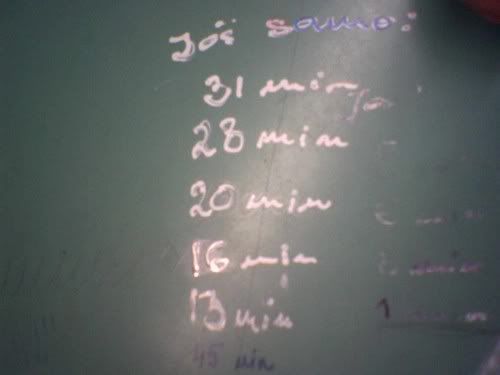 Još samo:
31 min
28 min
20 min
16 min
13 min
45 min